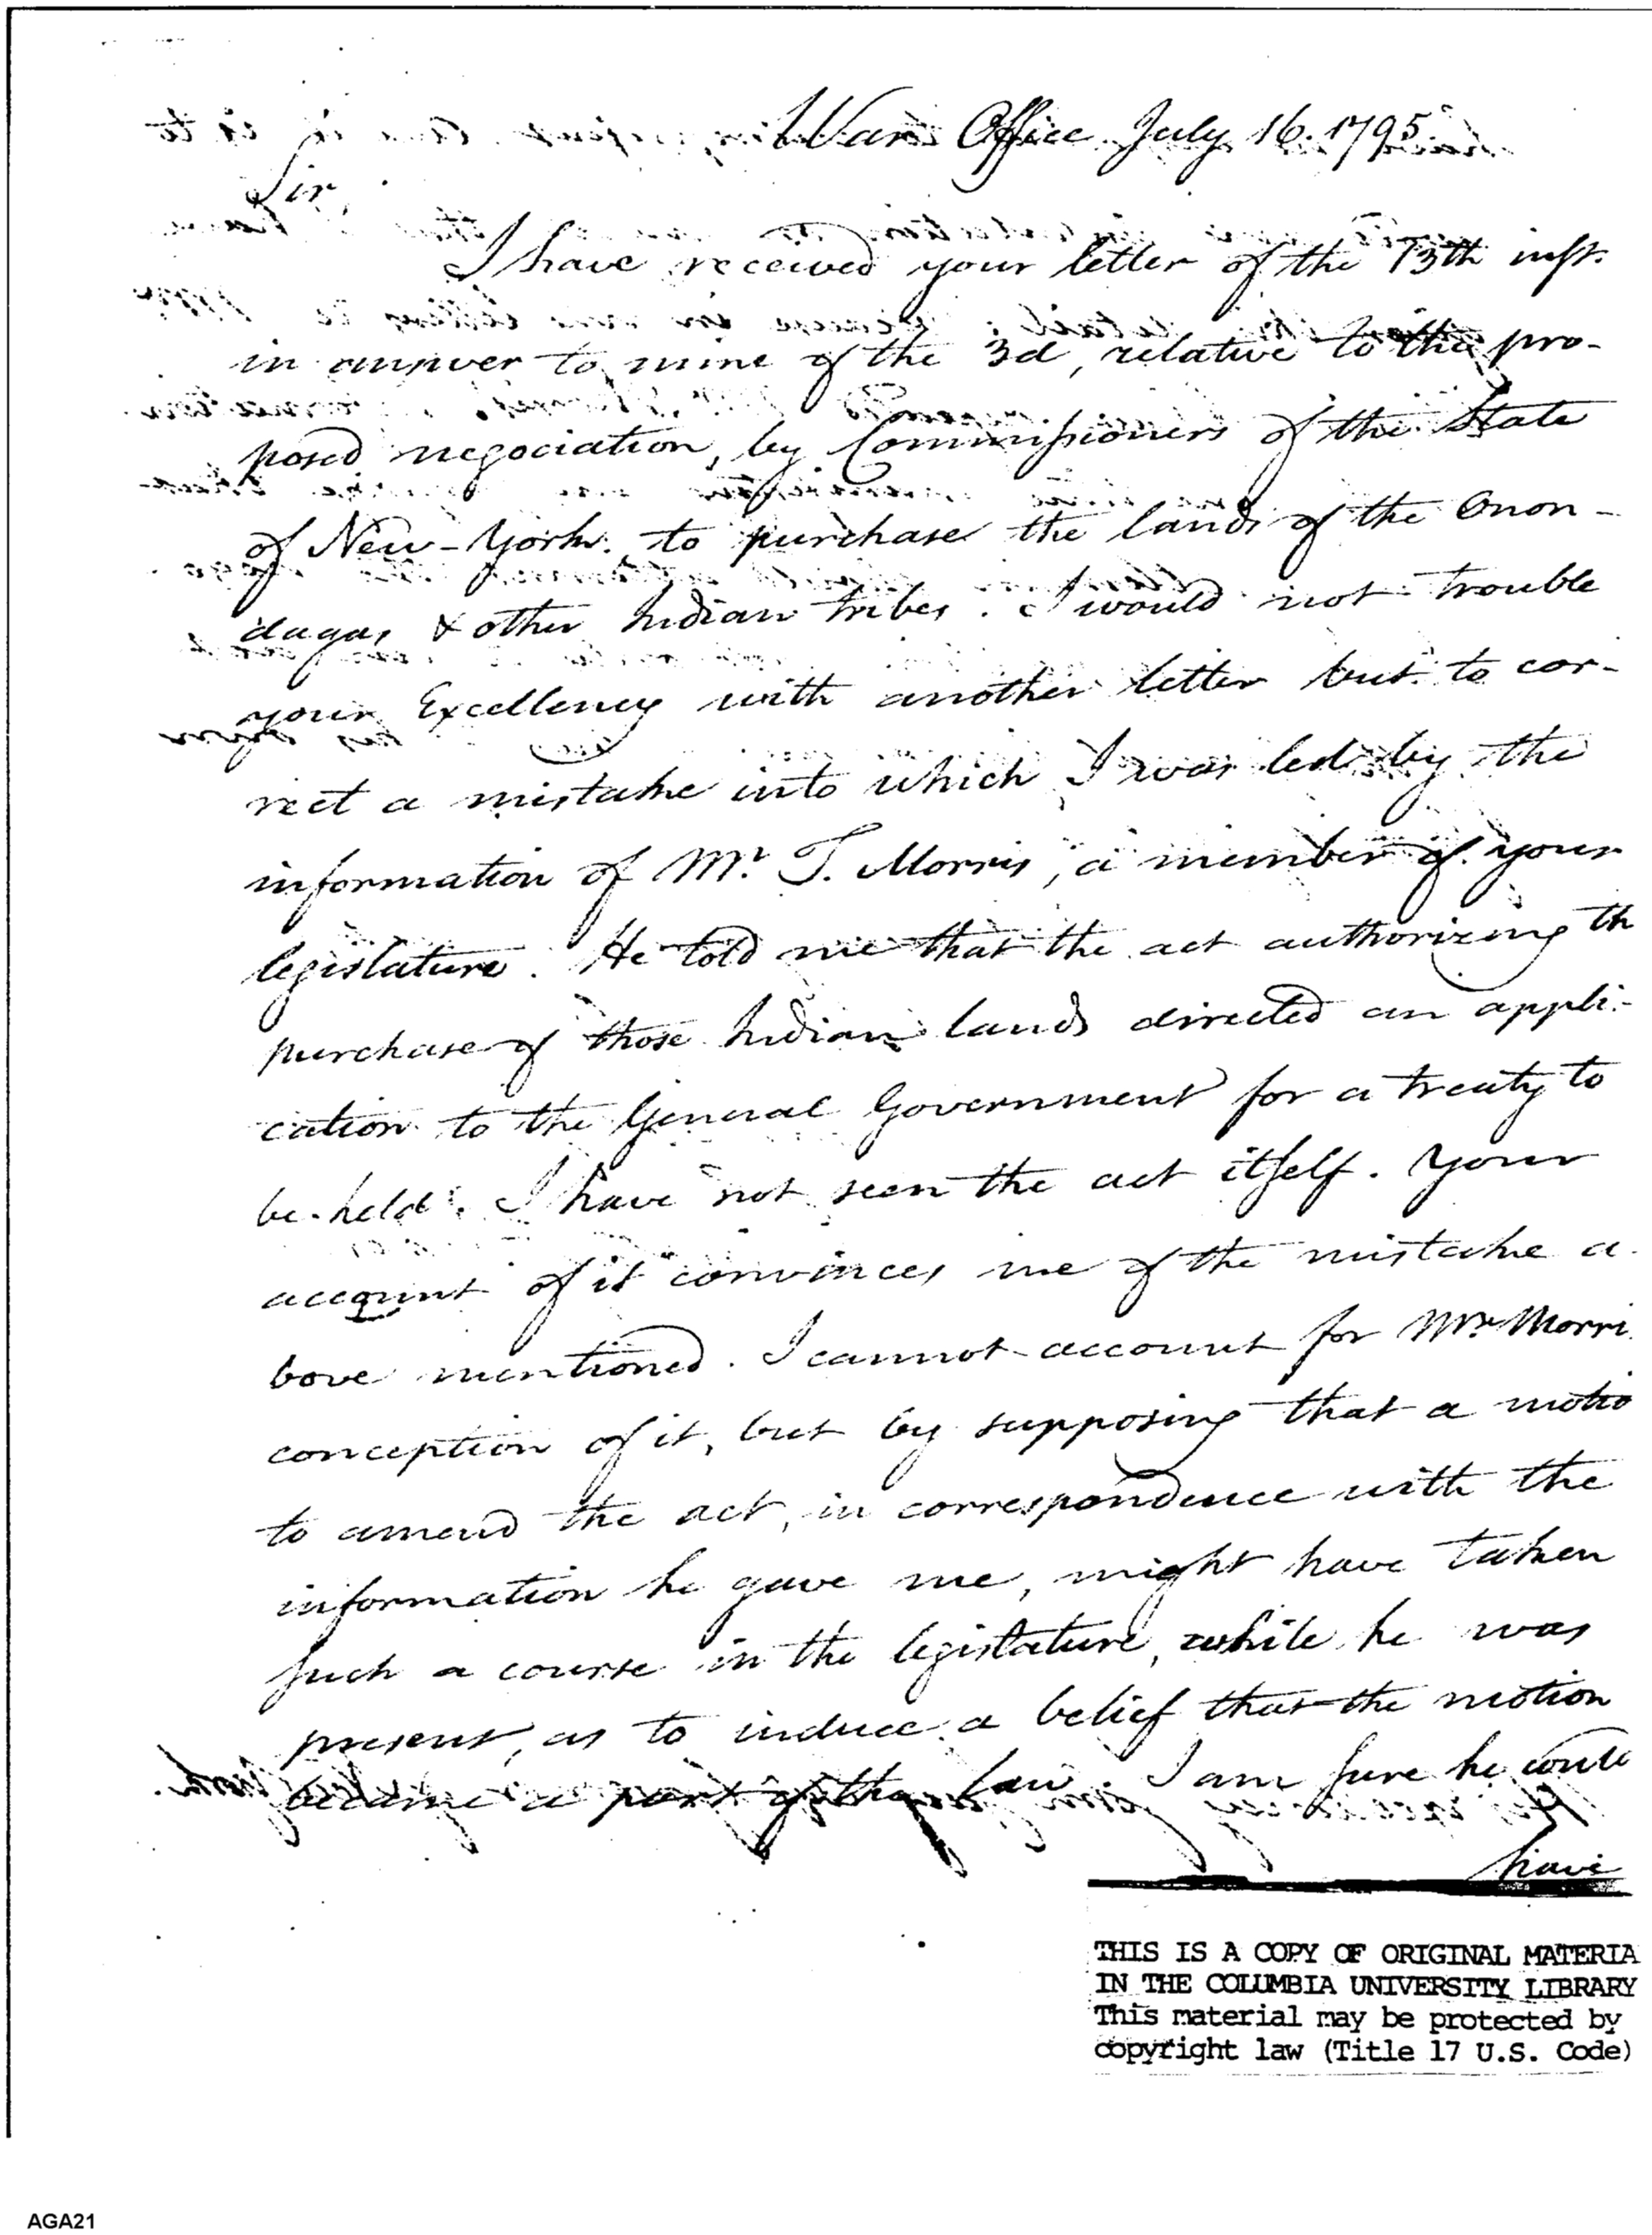 War Office July 16. 1795.
Sir,
I have received your letter of the 13th inst.
in answer to mine of the 3d, relative to the pro-
posed negociation, by Commissioners of the State
of New-York, to purchase the lands of the Onon-
dagas & other Indian tribes. I would not trouble
your Excellency with another letter but to cor-
rect a mistake into which I was led by the
information of Mr. T. Morris, a member of your
legislature. He told me that the act authorizing th
purchase of those Indian lands directed an appli-
cation to the General Government for a treaty to
be held. I have not seen the act itself. Your
account of it convinces me of the mistake a-
bove mentioned. I cannot account for Mr. Morri
conception of it, but by supposing that a motio
to amend the act, in correspondence with the
information he gave me, might have taken
such a course in the legislature, while he was
present, as to induce a belief that the motion
became a part of the law. I am sure he could
have
THIS IS A COPY OF ORIGINAL MATERIA
IN THE COLUMBIA UNIVERSITY LIBRARY
This material may be protected by
copyright law (Title 17 U.S. Code)
AGA21